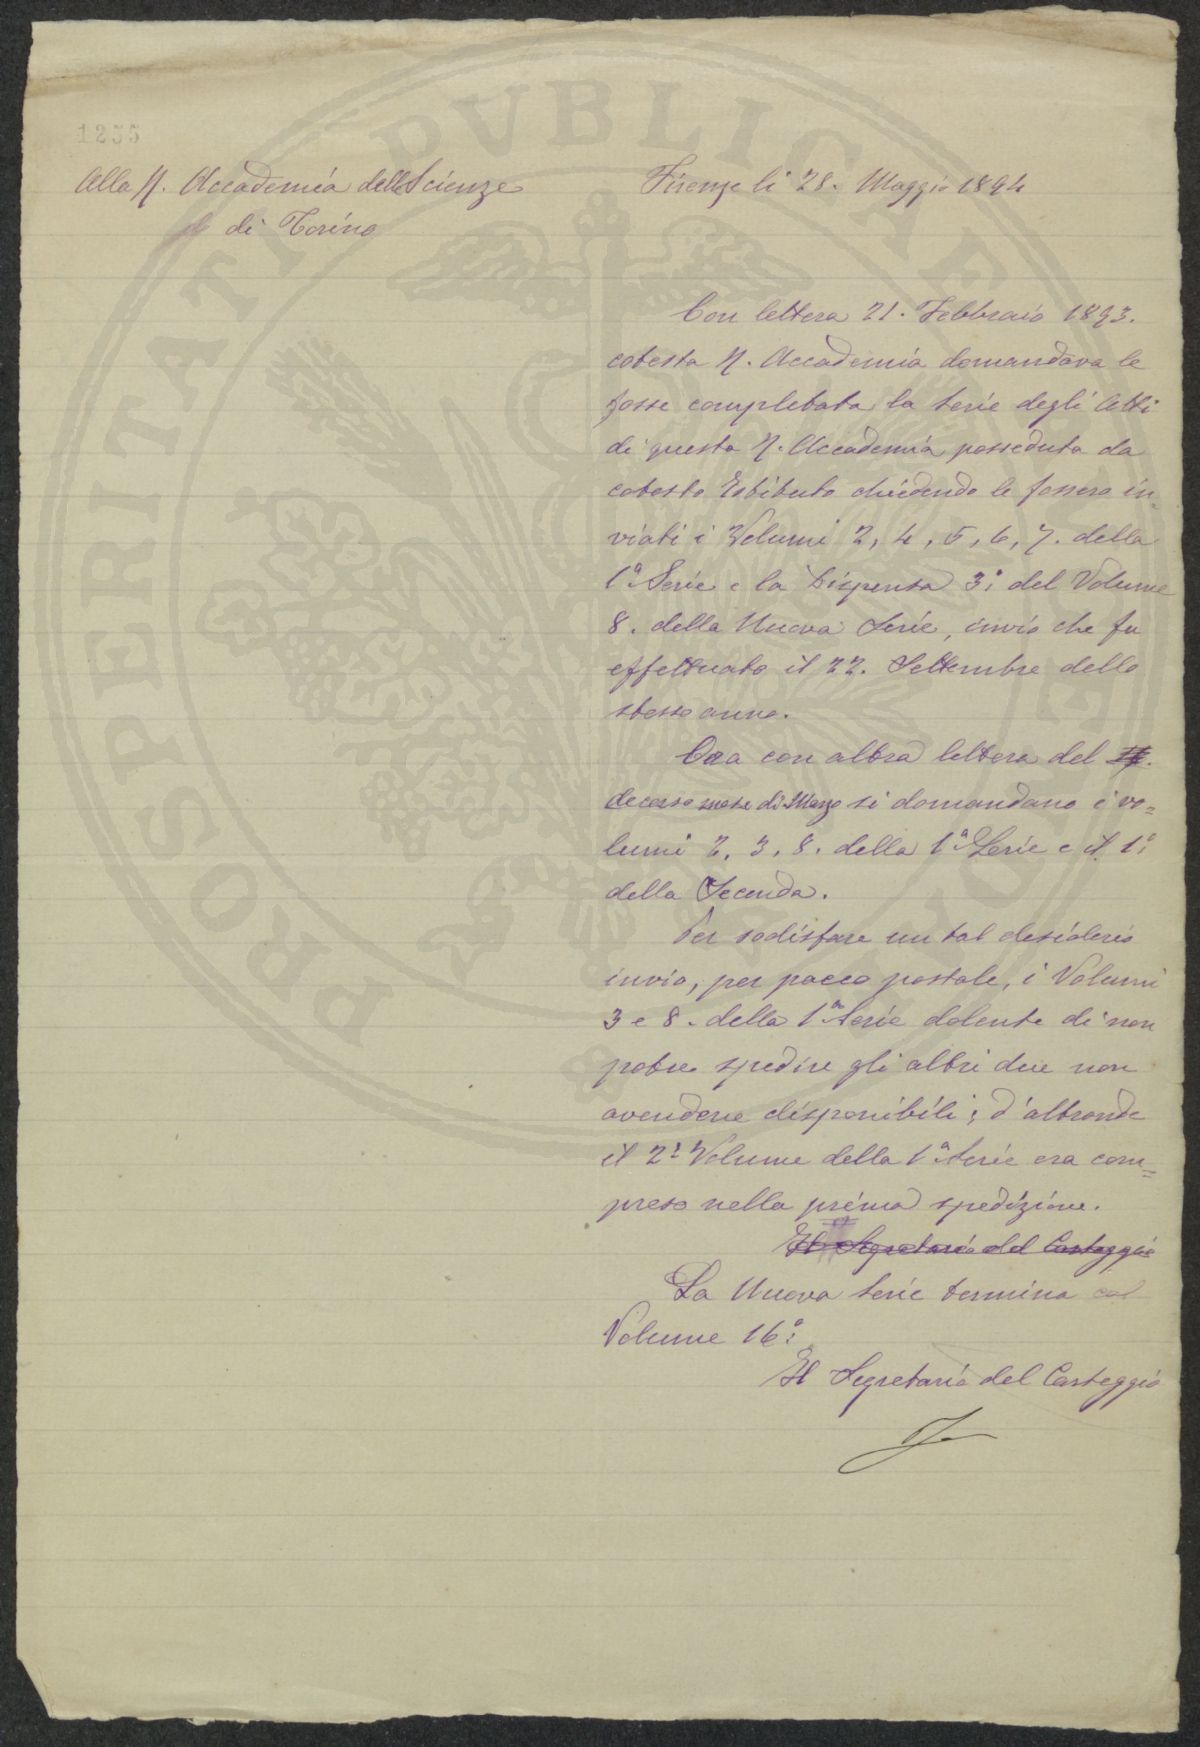 1255
Alla R. Accademia delle Scienze
di Torino
Firenze li 28. Maggio 1894
Con lettera 21. Febbraio 1893.
cotesta R. Accademia domandava le
fosse completata la serie degli Atti
di questa R. Accademia posseduta da
cotesto Istituto chiedendo le fossero in=
viati i Volumi 2, 4, 5, 6, 7. della
1ª Serie e la Dispensa 3ª del Volume
8. della Nuova Serie, invio che fu
effettuato il 22. Settembre dello
stesso anno.
Ora con altra lettera del
decorso mese di Marzo si domandano i vo=
lumi 2, 3, 8. della 1ª Serie e il 1º
della Seconda.
Per sodisfare un tal desiderio
invio, per pacco postale, i Volumi
3 e 8. della 1ª Serie dolente di non
potere spedire gli altri due non
avendone disponibili; d'altronde
il 2º Volume della 1ª Serie era com=
preso nella prima spedizione.
Il Segretario del Carteggio
La Nuova Serie termina col
Volume 16º
Il Segretario del Carteggio
PROSPERITATI PVBLICAE